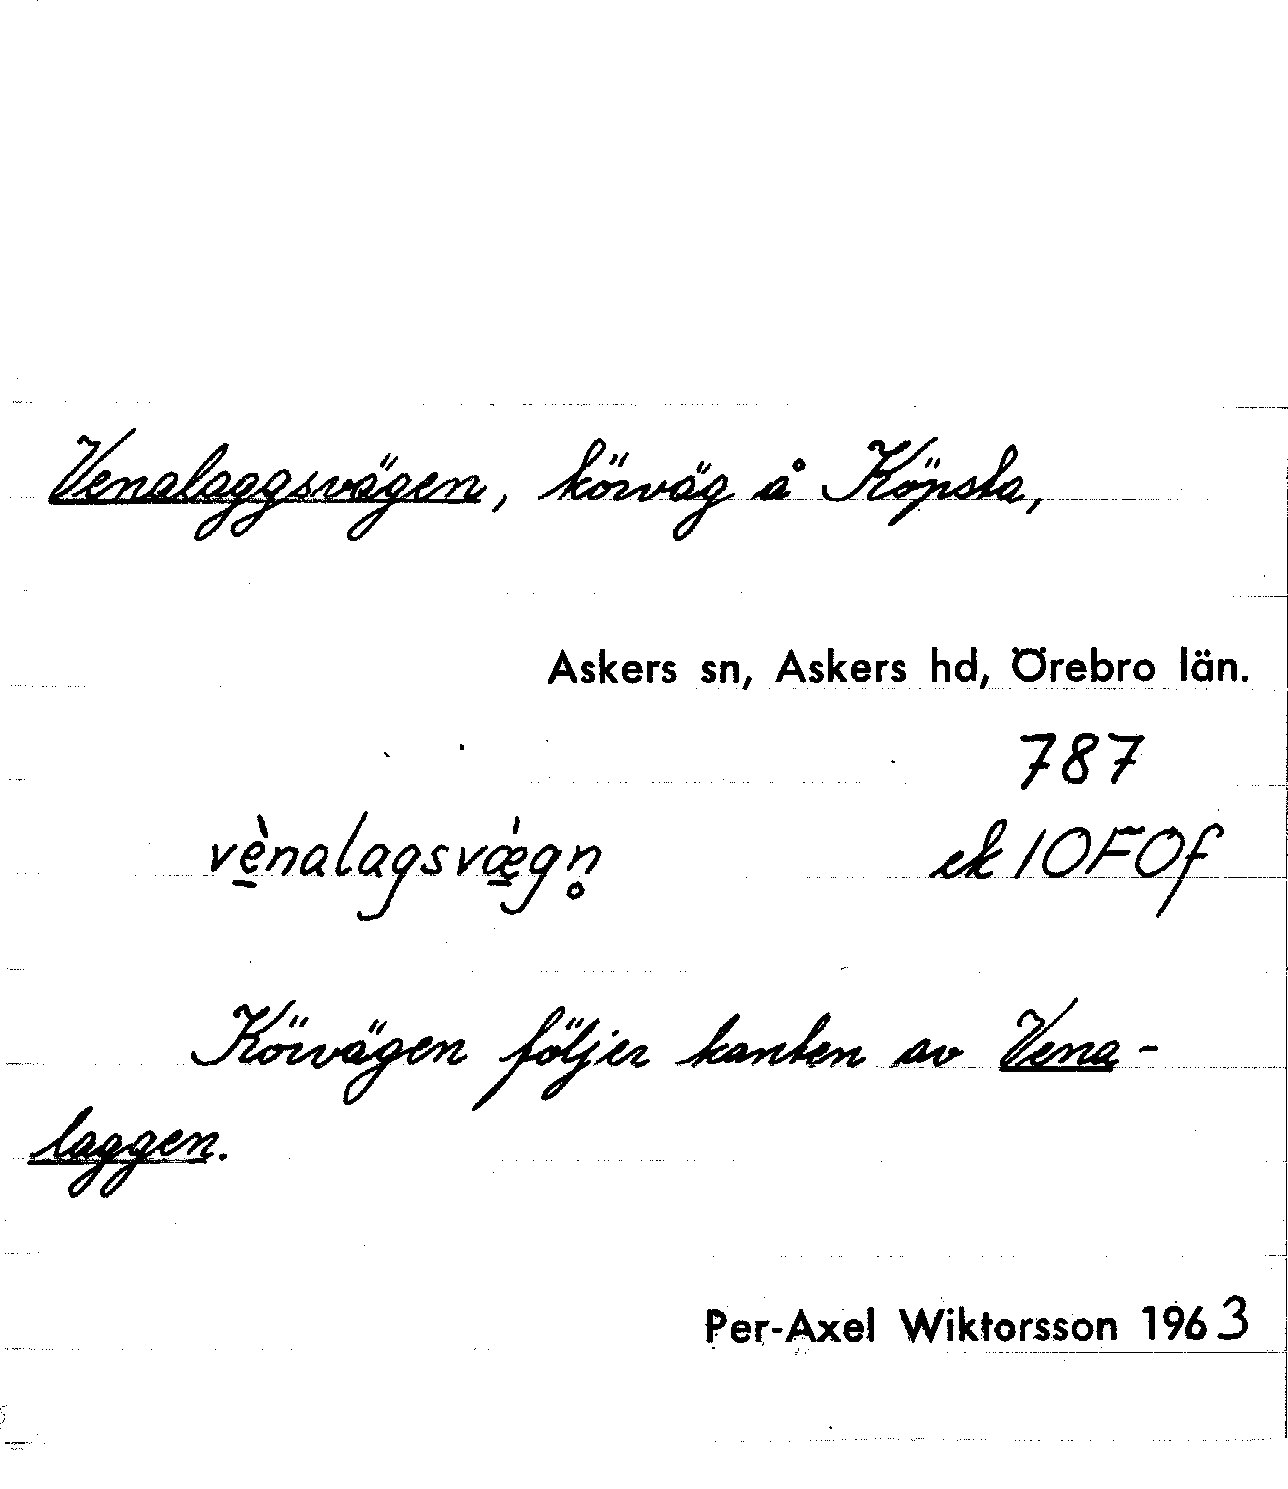 Venalaggsvägen, körväg å Köpsta,
Askers sn, Askers hd, Örebro län.
787
vè̱nalagsvæ̱̀gn̥ ek 10F0f
Körvägen följer kanten av Vena-
laggen.
Per-Axel Wiktorsson 1963